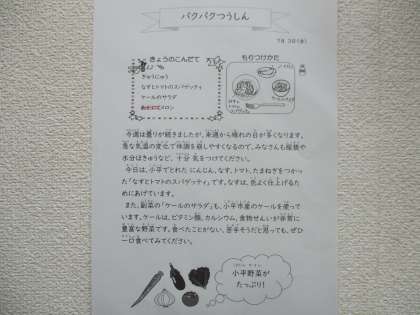 パクパクつうしん
きょうのこんだて
もりつけかた
ぎゅうにゅう
なすとトマトのスパゲッティ
ケールのサラダ
メロン
今週は曇りが続きましたが、来週から晴れの日が多くなります。
急な気温の変化で体調を崩しやすくなるので、みなさんも睡眠や
水分ほきゅうなど、十分気をつけてください。
今日は、小平でとれたにんじん、なす、トマト、たまねぎをつかっ
た「なすとトマトのスパゲッティ」です。なすは、色よく仕上げるため
にあげています。
また、副菜の「ケールのサラダ」も、小平市産のケールを使って
います。ケールは、ビタミン類、カルシウム、食物せんいが非常に
豊富な野菜です。食べたことがない、苦手そうだと思っても、ぜひ
一口食べてみてください。
小平野菜が
たっぷり!